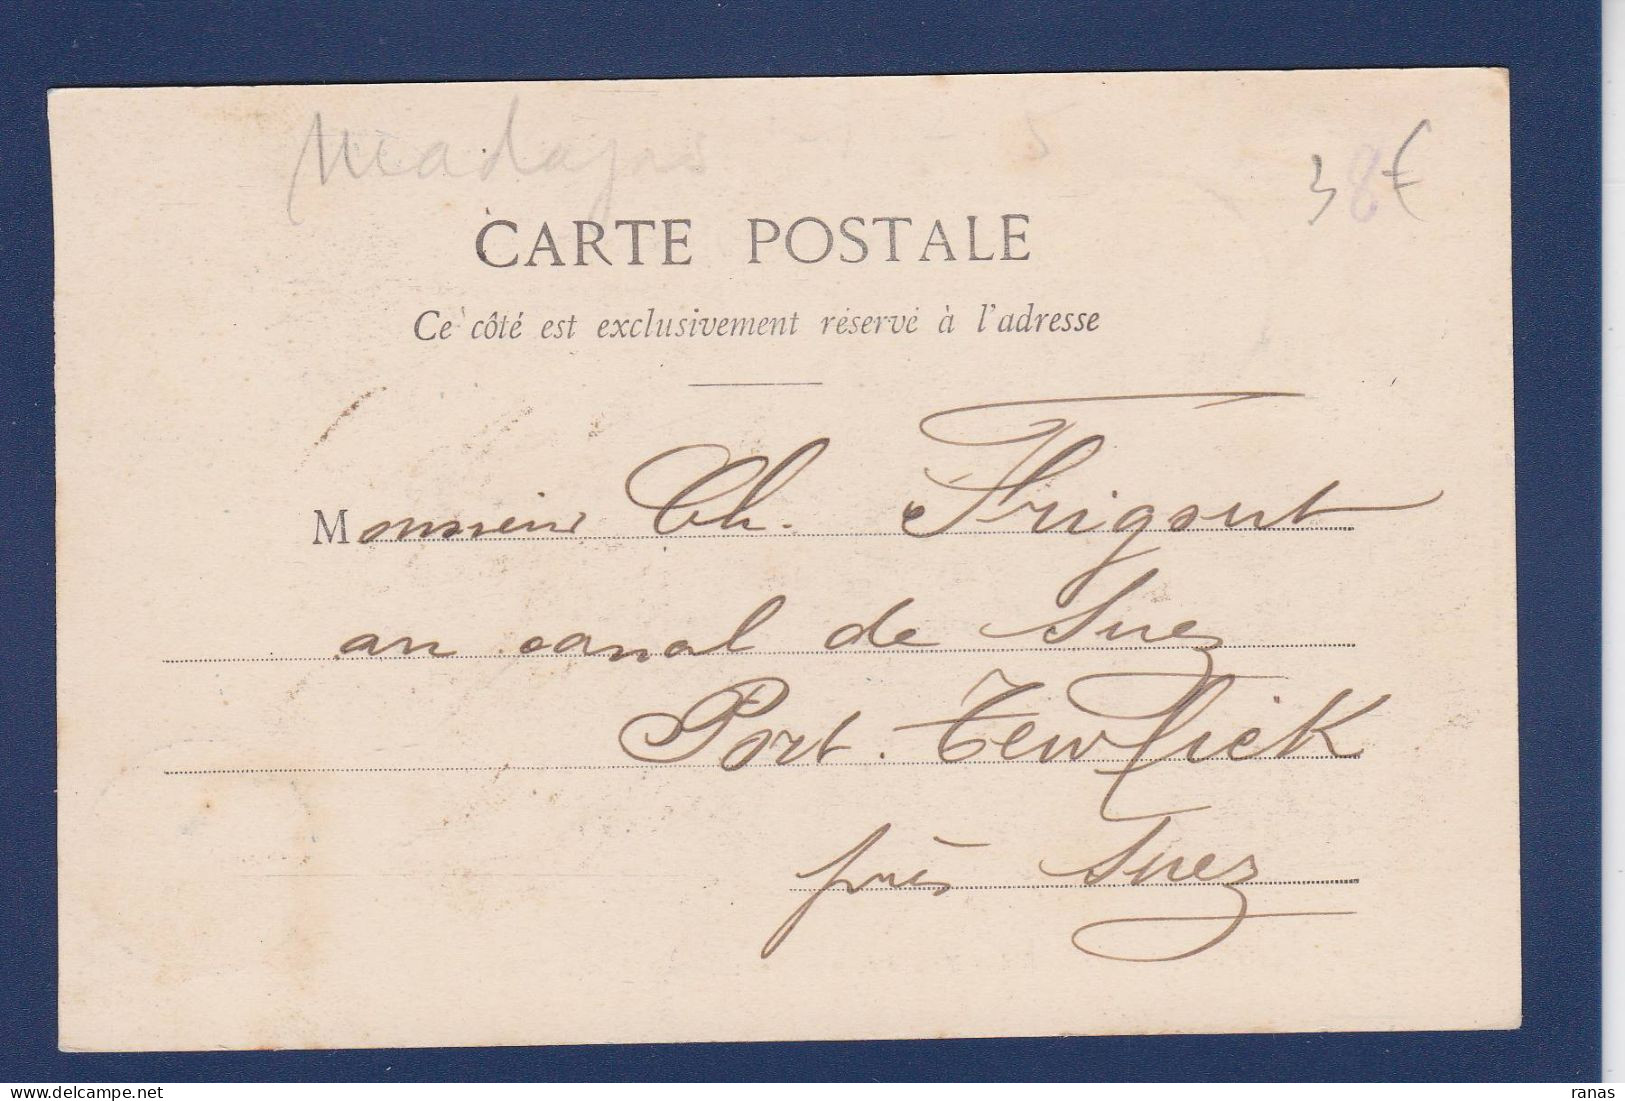 Madagas
38€
CARTE POSTALE
Ce côté est exclusivement réservé à l'adresse
Monsieur Ch. Frigout
au canal de Suez
Port. Tewfick
près Suez
ranas